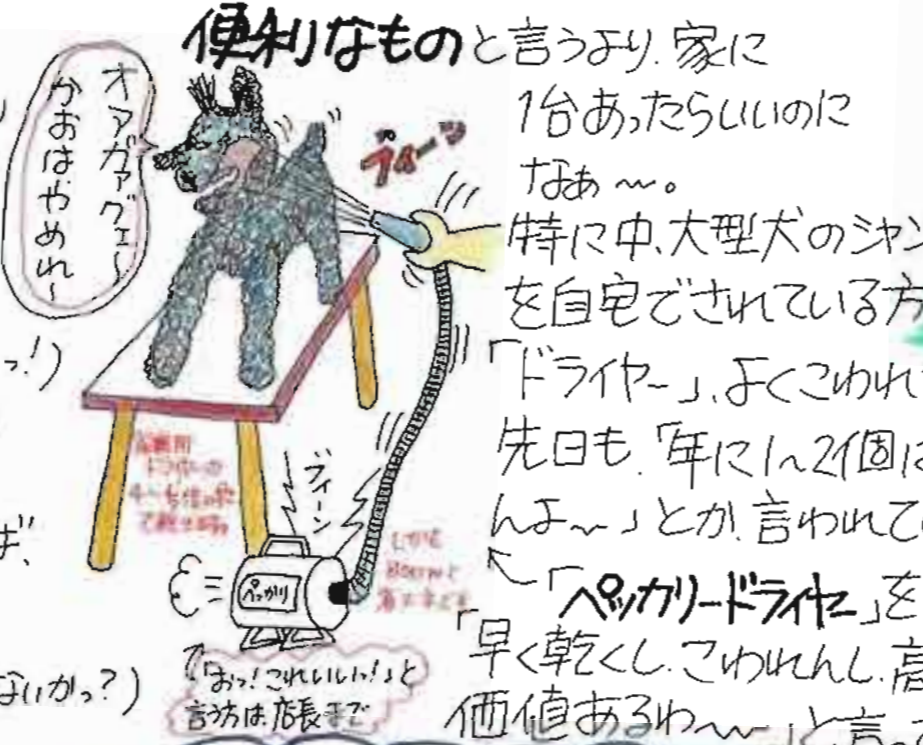 便利なものと言うより、家に
1台あったらいいのに
なぁ〜。
特に中、大型犬のシャン
を自宅でされている方
「ドライヤー」、よくこわれ
先日も、「年に1〜2個は
んよ〜」とか、言われて
「ペッカリードライヤー」を
「早く乾くし、こわれんし、高
価値あるわ〜」と言
オアガァグェ〜
かおはやめれ〜
ブィーン
っ!)
ば、
ないかっ?)
ブィーン
ぺっかり
しかも
「おっ!これいいっ!」と
言う方は、店長まで